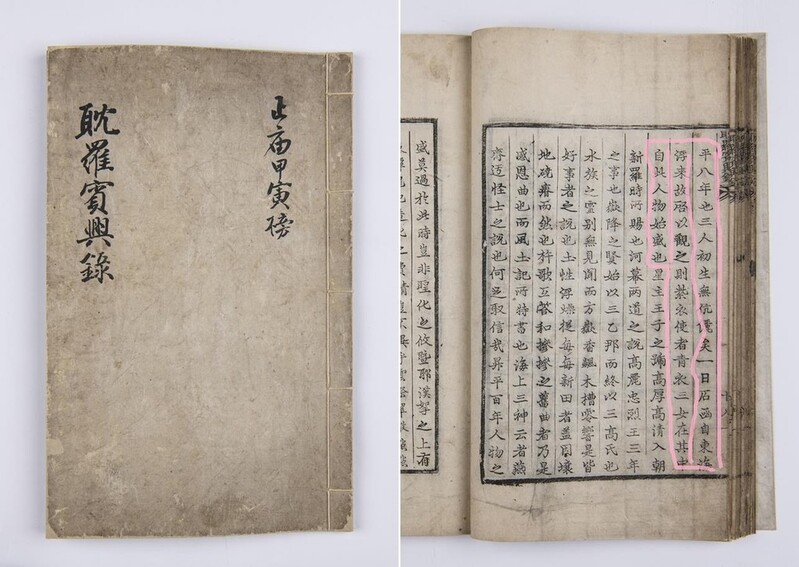 正庙甲寅榜
耽羅賓興錄
平八年也三人初生無伉儷矣一日石函自東海
浮來故啓以觀之則紫衣使者青衣三女在其中
自此人物始盛也星主王子之號高厚高清入朝
新羅時所賜也河幕兩道之說高麗忠烈王三年
之事也嶽降之賢始以三乙那而終以三高氏也
水族之靈別無見聞而方歡香瓢木槽零響是皆
好事者之說也土性浮燥提每每新田者盖因壤
地硗瘠而然也杵歌互答和摻摻之舊曲者乃是
感恩曲也而風土記所特書也海上三神云者燕
齊迂怪士之說也何足取信哉昇平百年人物之
盛莫過於此時豈非聖化之攸曁耶漢拏之上有